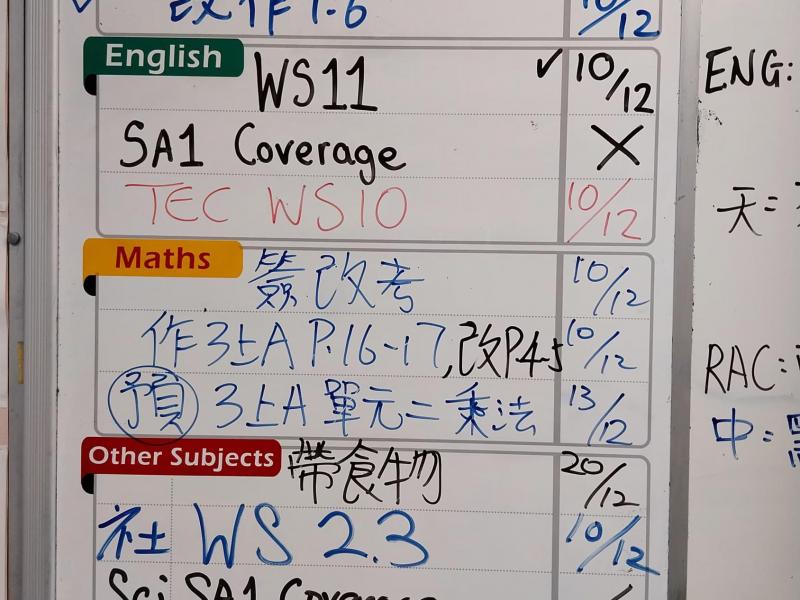 改作1.6 10/12
English
WS11 ✓10/12
SA1 Coverage X
TEC WS10 10/12
Maths
簽改考 10/12
作3上A P.16-17,改P4-5 10/12
預 3上A 單元二乘法 13/12
Other Subjects
帶食物 20/12
社 WS 2.3 10/12
Sci SA1 Coverage
ENG:
天=
RAC:
中=